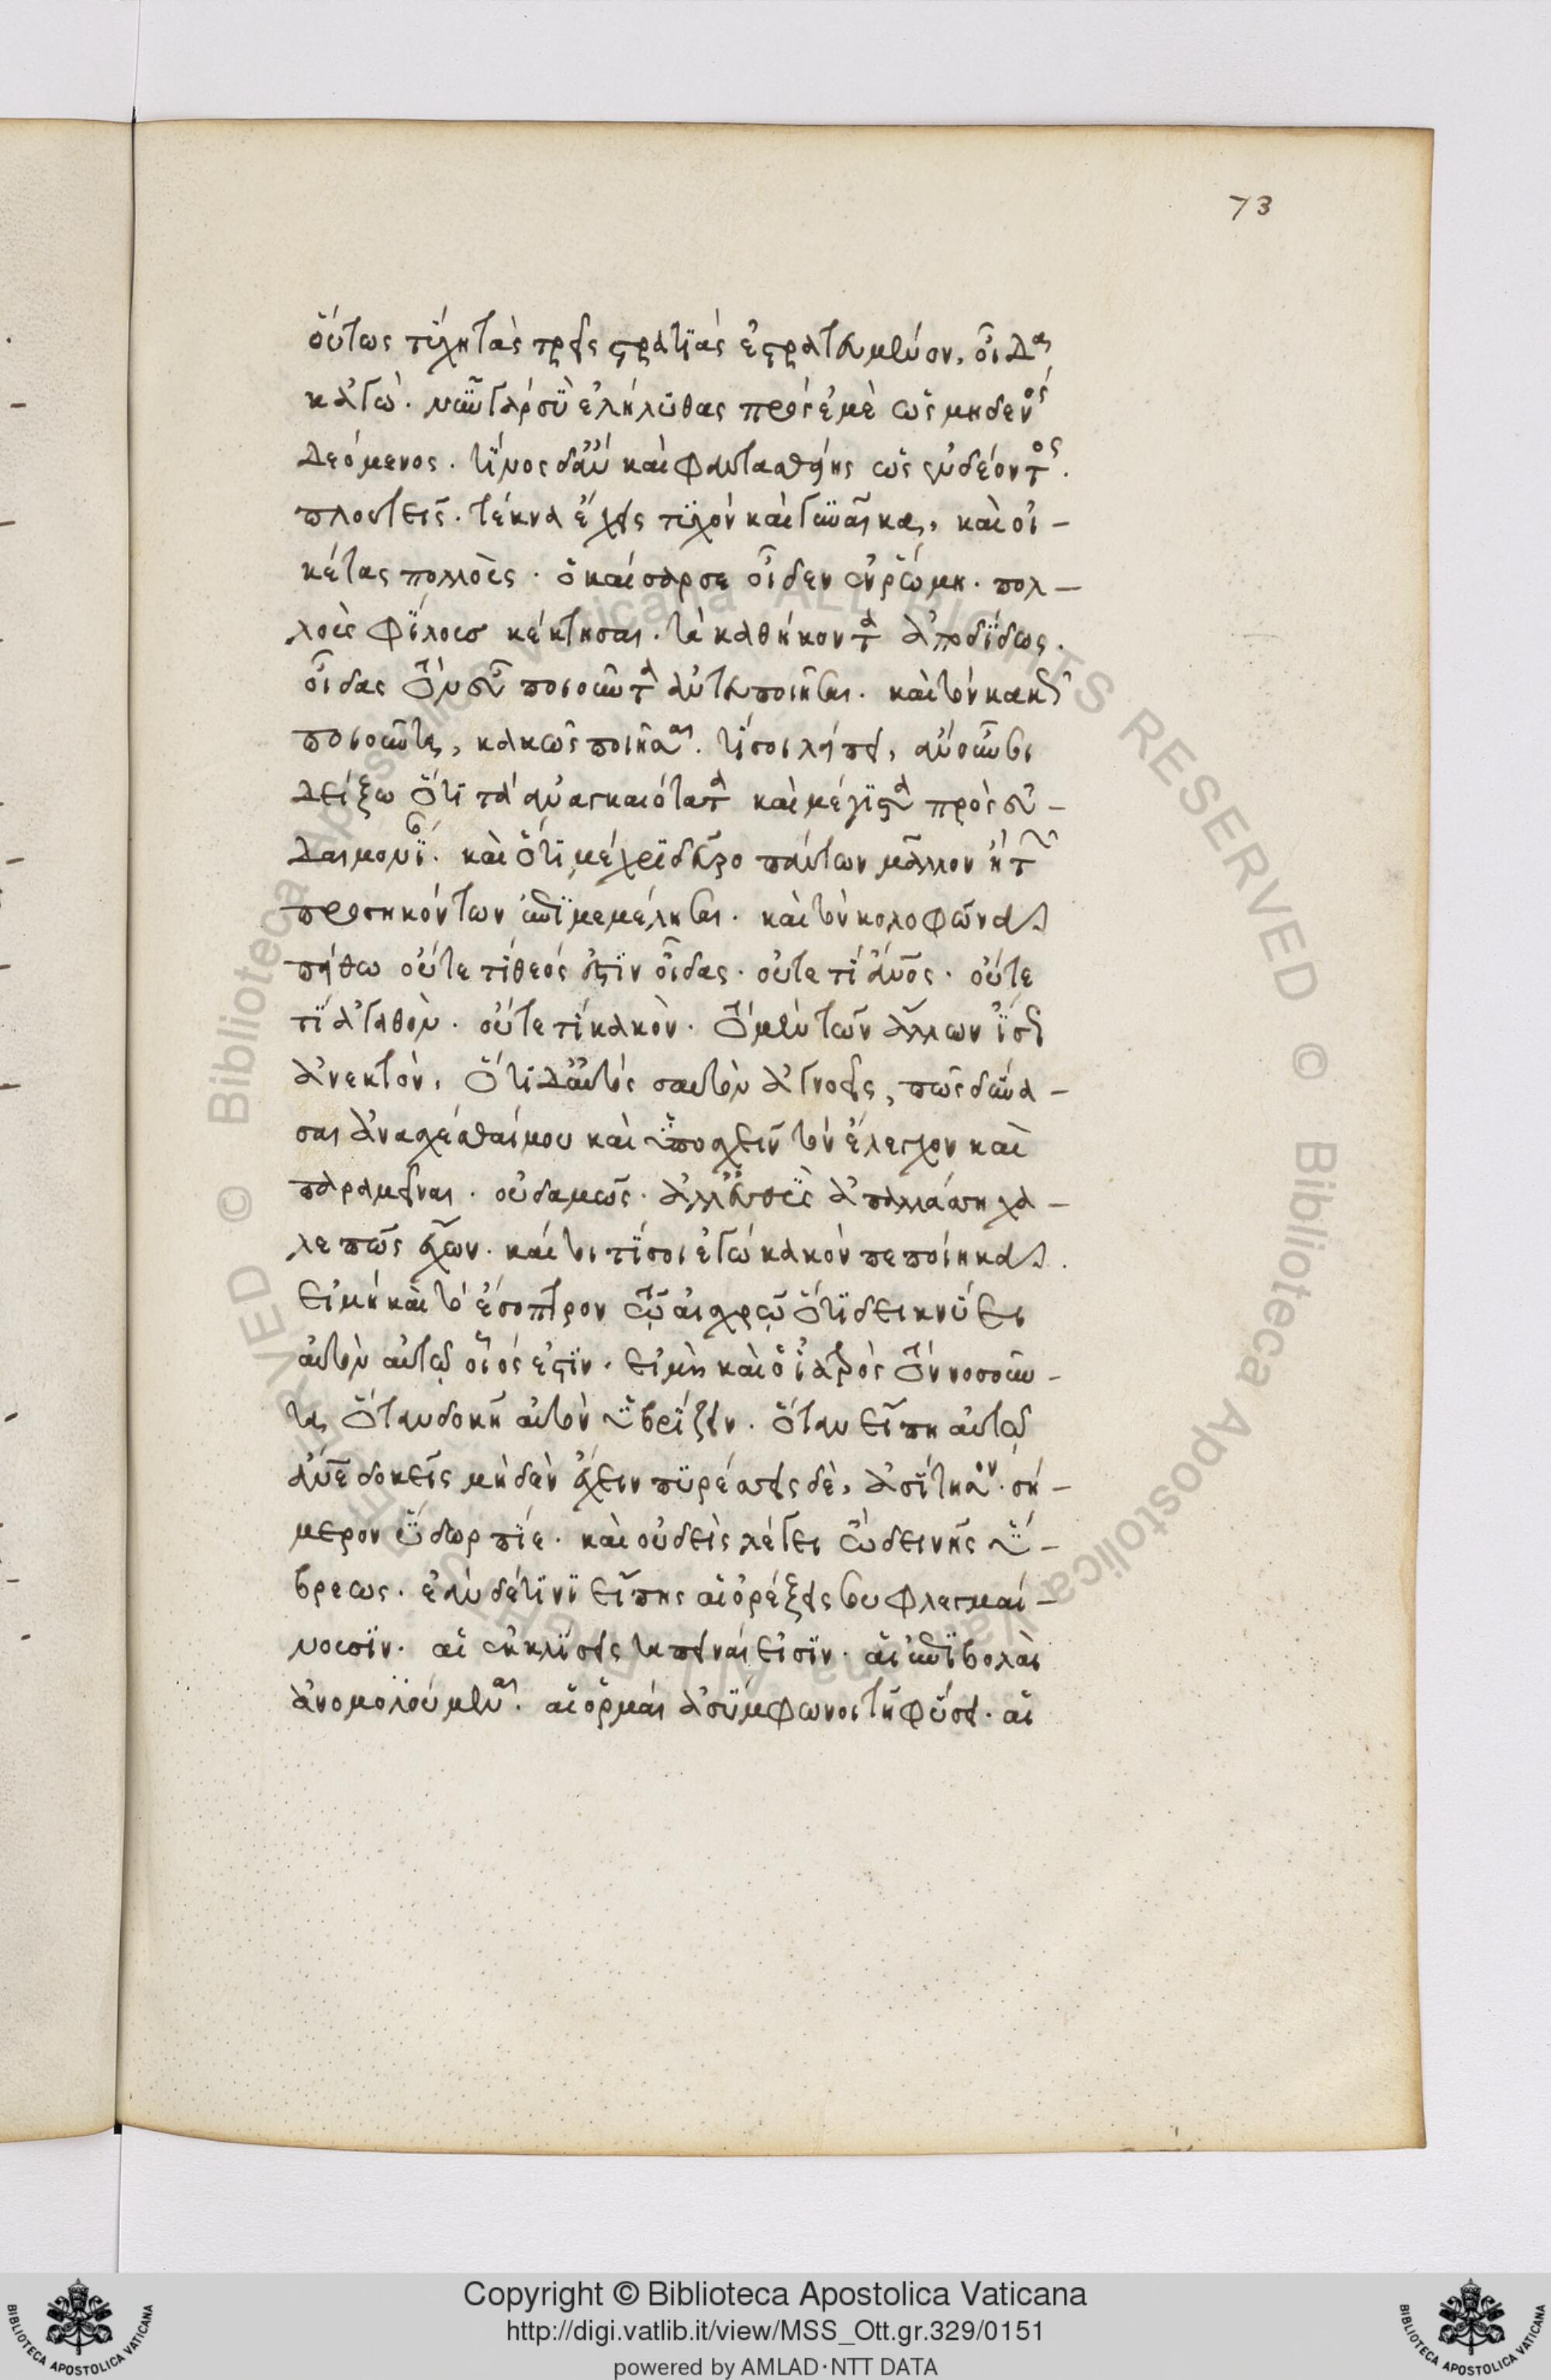 73
οὕτως τύχῃ τὰς τρεῖς στρατιὰς ἐστρατευμένον, οἶδα
κἀγώ. νῦν γὰρ σὺ ἐλήλυθας πρὸς ἐμὲ ὡς μηδενὸς
δεόμενος. τίνος δ' ἂν καὶ φαντασθῇς ὡς ἐνδέοντος.
πλουτεῖς. τέκνα ἔχεις τυχὸν καὶ γυναῖκα, καὶ οἰ-
κέτας πολλοὺς. ὁ καῖσάρ σε οἶδεν ἐν ῥώμῃ. πολ-
λοὺς φίλους κέκτησαι. τὰ καθήκοντα ἀποδίδως.
οἶδας τὸν εὖ ποιοῦντα ἀντευποιῆσαι. καὶ τὸν κακῶς
ποιοῦντα, κακῶς ποιῆσαι. τί σοι λείπει, ἂν οὖν σοι
δείξω ὅτι τὰ ἀναγκαιότατα καὶ μέγιστα πρὸς εὐ-
δαιμονίαν. καὶ ὅτι μέχρι δεῦρο πάντων μᾶλλον ἢ τῶν
προσηκόντων ἐπιμεμέλησαι. καὶ τὸν κολοφῶνα ἐ-
πίθω οὔτε τί θεός ἐστιν οἶδας. οὔτε τί ἄνος. οὔτε
τί ἀγαθὸν. οὔτε τί κακὸν. τὸ μὲν τῶν ἄλλων ἴσως
ἀνεκτόν, ὅτι δ' αὐτὸς σαυτὸν ἀγνοεῖς, πῶς δύνα-
σαι ἀνασχέσθαι μου καὶ ὑποσχεῖν τὸν ἔλεγχον καὶ
παραμεῖναι. οὐδαμῶς. ἀλλ' εὐθὺς ἀπαλλάσσῃ χα-
λεπῶς ἔχων. καίτοι τί σοι ἐγὼ κακὸν πεποίηκα.
εἰ μὴ καὶ τὸ ἔσοπτρον τῷ αἰσχρῷ ὅτι δεικνύει
αὐτὸν αὐτῷ οἷός ἐστιν. εἰ μὴ καὶ ὁ ἰατρὸς τὸν νοσοῦν-
τα, ὅταν δοκῇ αὐτὸν ὑβρίζειν. ὅταν εἴπῃ αὐτῷ
ἄνε δοκεῖς μηδὲν ἔχειν πυρέσσεις δὲ, ἀσίτησον. σή-
μερον ὕδωρ πίε. καὶ οὐδεὶς λέγει ὦ δεινῆς ὕ-
βρεως. ἐὰν δέ τινι εἴπῃς αἱ ὀρέξεις σου φλεγμαί-
νουσιν. αἱ ἐκκλίσεις ταπειναί εἰσιν. αἱ ἐπιβολαὶ
ἀνομολούμεναι. αἱ ὁρμαὶ ἀσύμφωνοι τῇ φύσει. αἱ
Copyright © Biblioteca Apostolica Vaticana
http://digi.vatlib.it/view/MSS_Ott.gr.329/0151
powered by AMLAD·NTT DATA